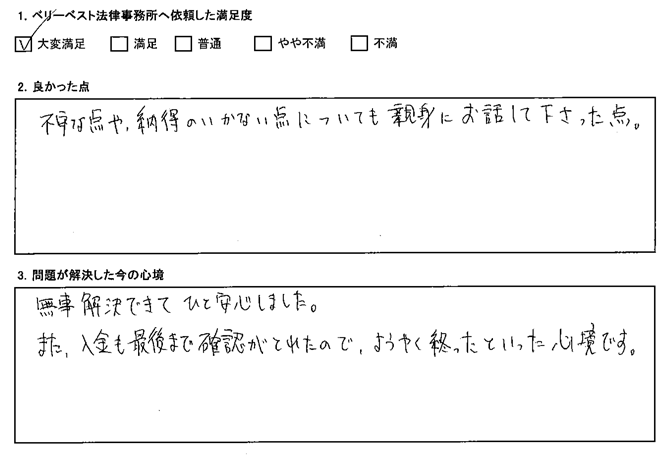 1. ベリーベスト法律事務所へ依頼した満足度
☑ 大変満足 □ 満足 □ 普通 □ やや不満 □ 不満
2. 良かった点
不安な点や、納得のいかない点についても親身にお話して下さった点。
3. 問題が解決した今の心境
無事解決できてひと安心しました。
また、入金も最後まで確認がとれたので、ようやく終ったといった心境です。